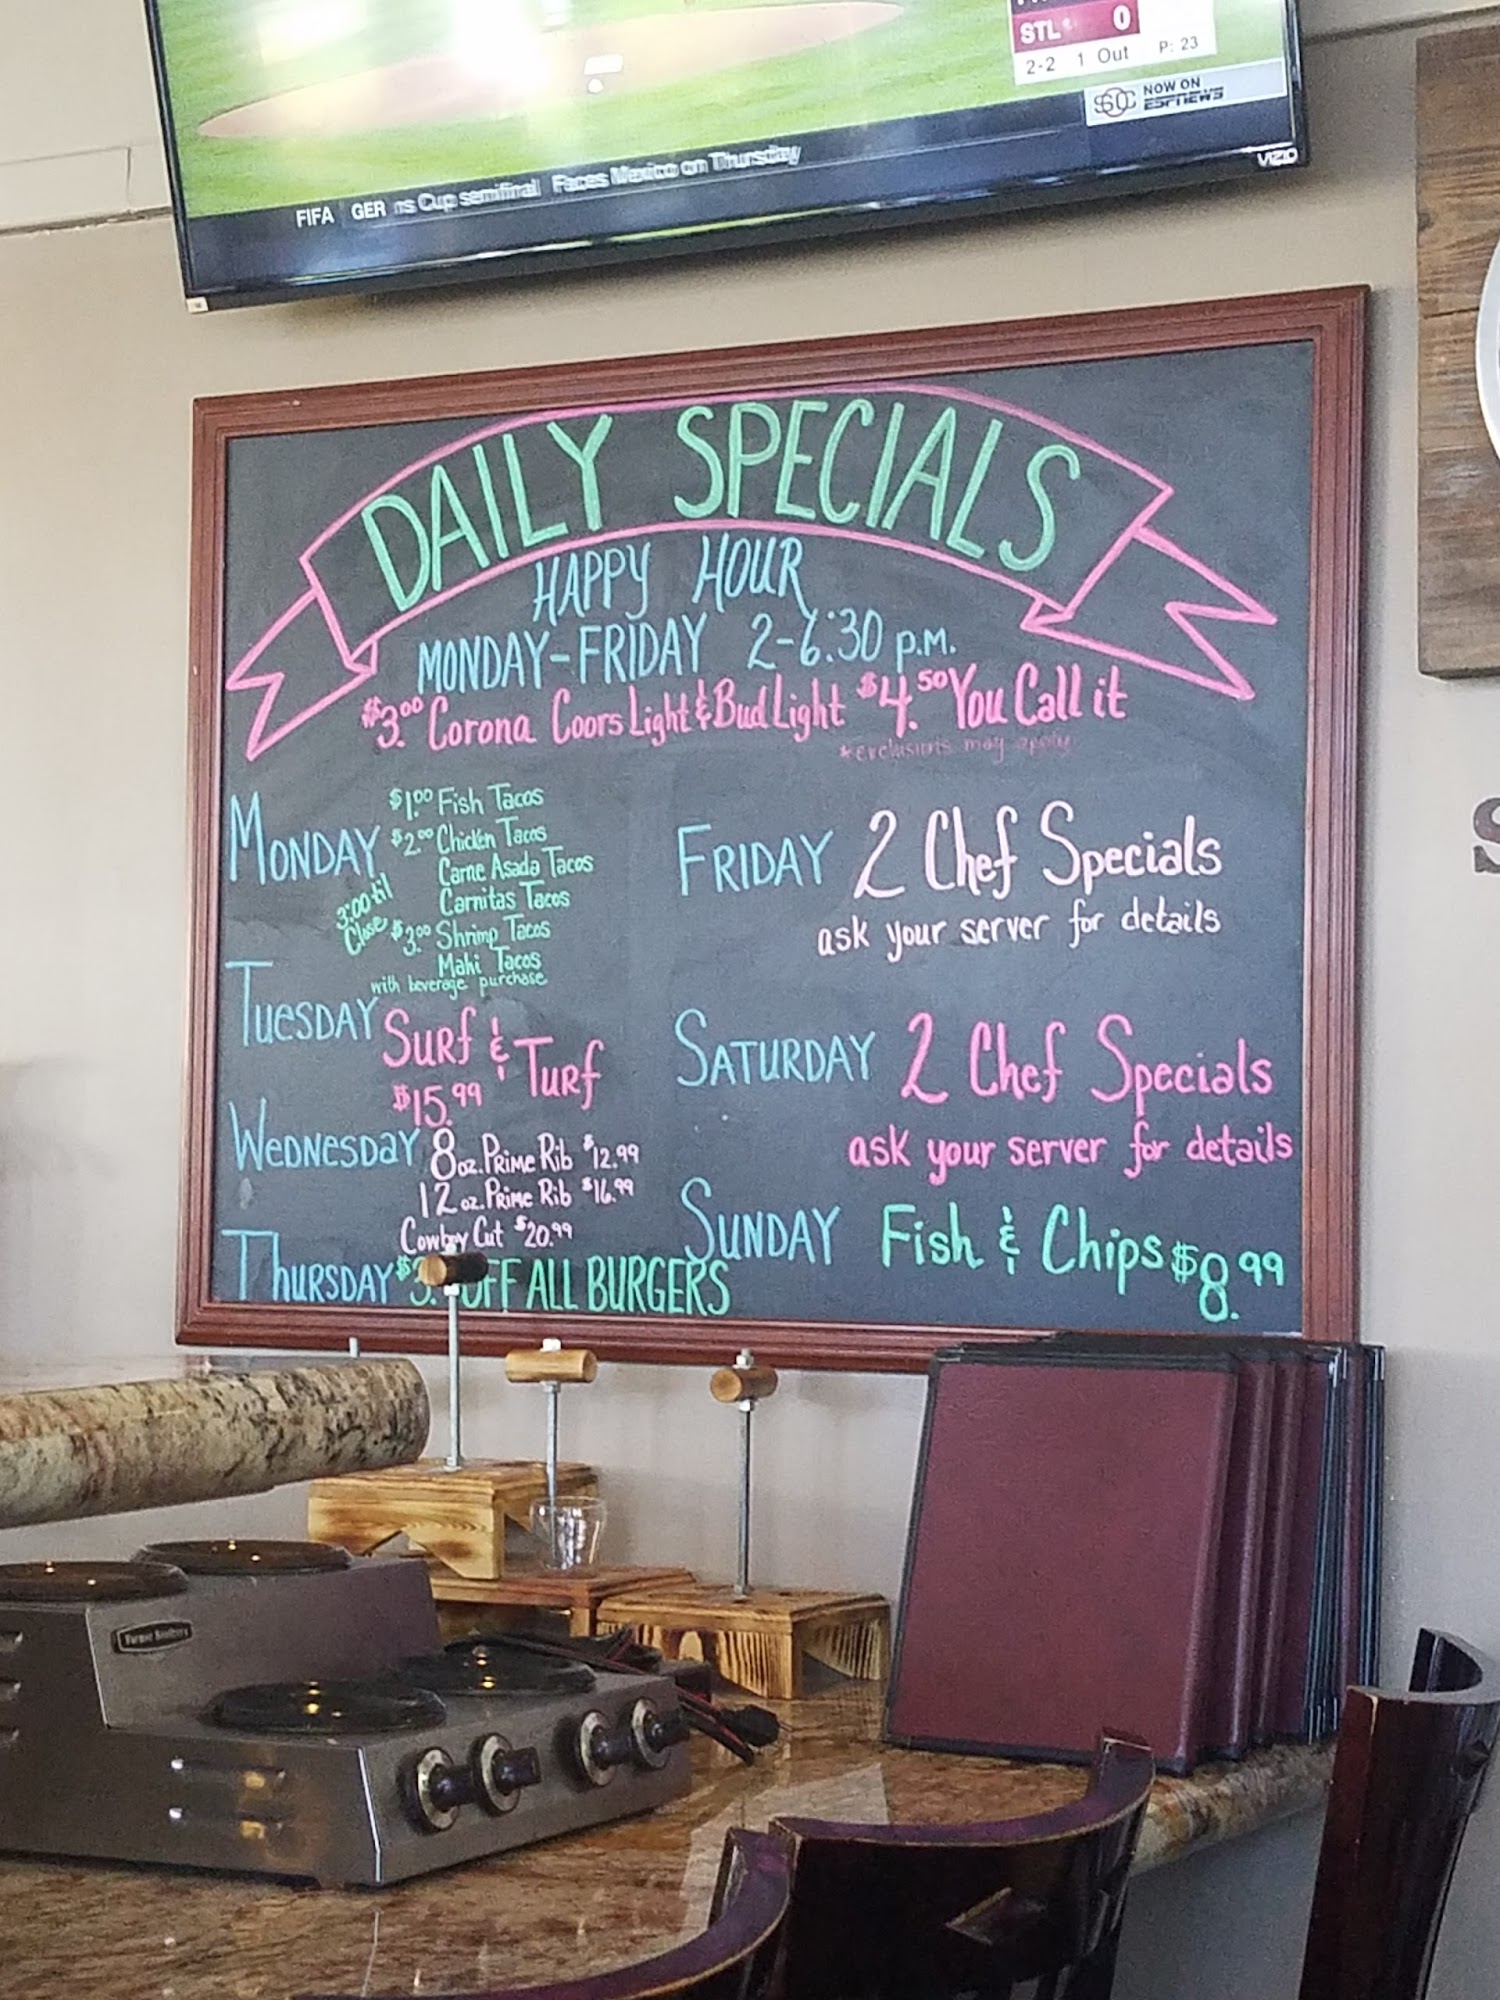 STL 0
2-2 1 Out P: 23
NOW ON
ESPNEWS
VIZIO
FIFA GER ns Cup semifinal Faces Mexico on Thursday
DAILY SPECIALS
HAPPY HOUR
MONDAY-FRIDAY 2-6:30 P.M.
$3.00 Corona Coors Light & Bud Light $4.50 You Call it
*exclusions may apply
MONDAY
3:00 til
Close
$1.00 Fish Tacos
$2.00 Chicken Tacos
Carne Asada Tacos
Carnitas Tacos
$3.00 Shrimp Tacos
Mahi Tacos
with beverage purchase
TUESDAY Surf & Turf
$15.99
WEDNESDAY 8 oz. Prime Rib $12.99
12 oz. Prime Rib $16.99
Cowboy Cut $20.99
THURSDAY $3. OFF ALL BURGERS
FRIDAY 2 Chef Specials
ask your server for details
SATURDAY 2 Chef Specials
ask your server for details
SUNDAY Fish & Chips $8.99